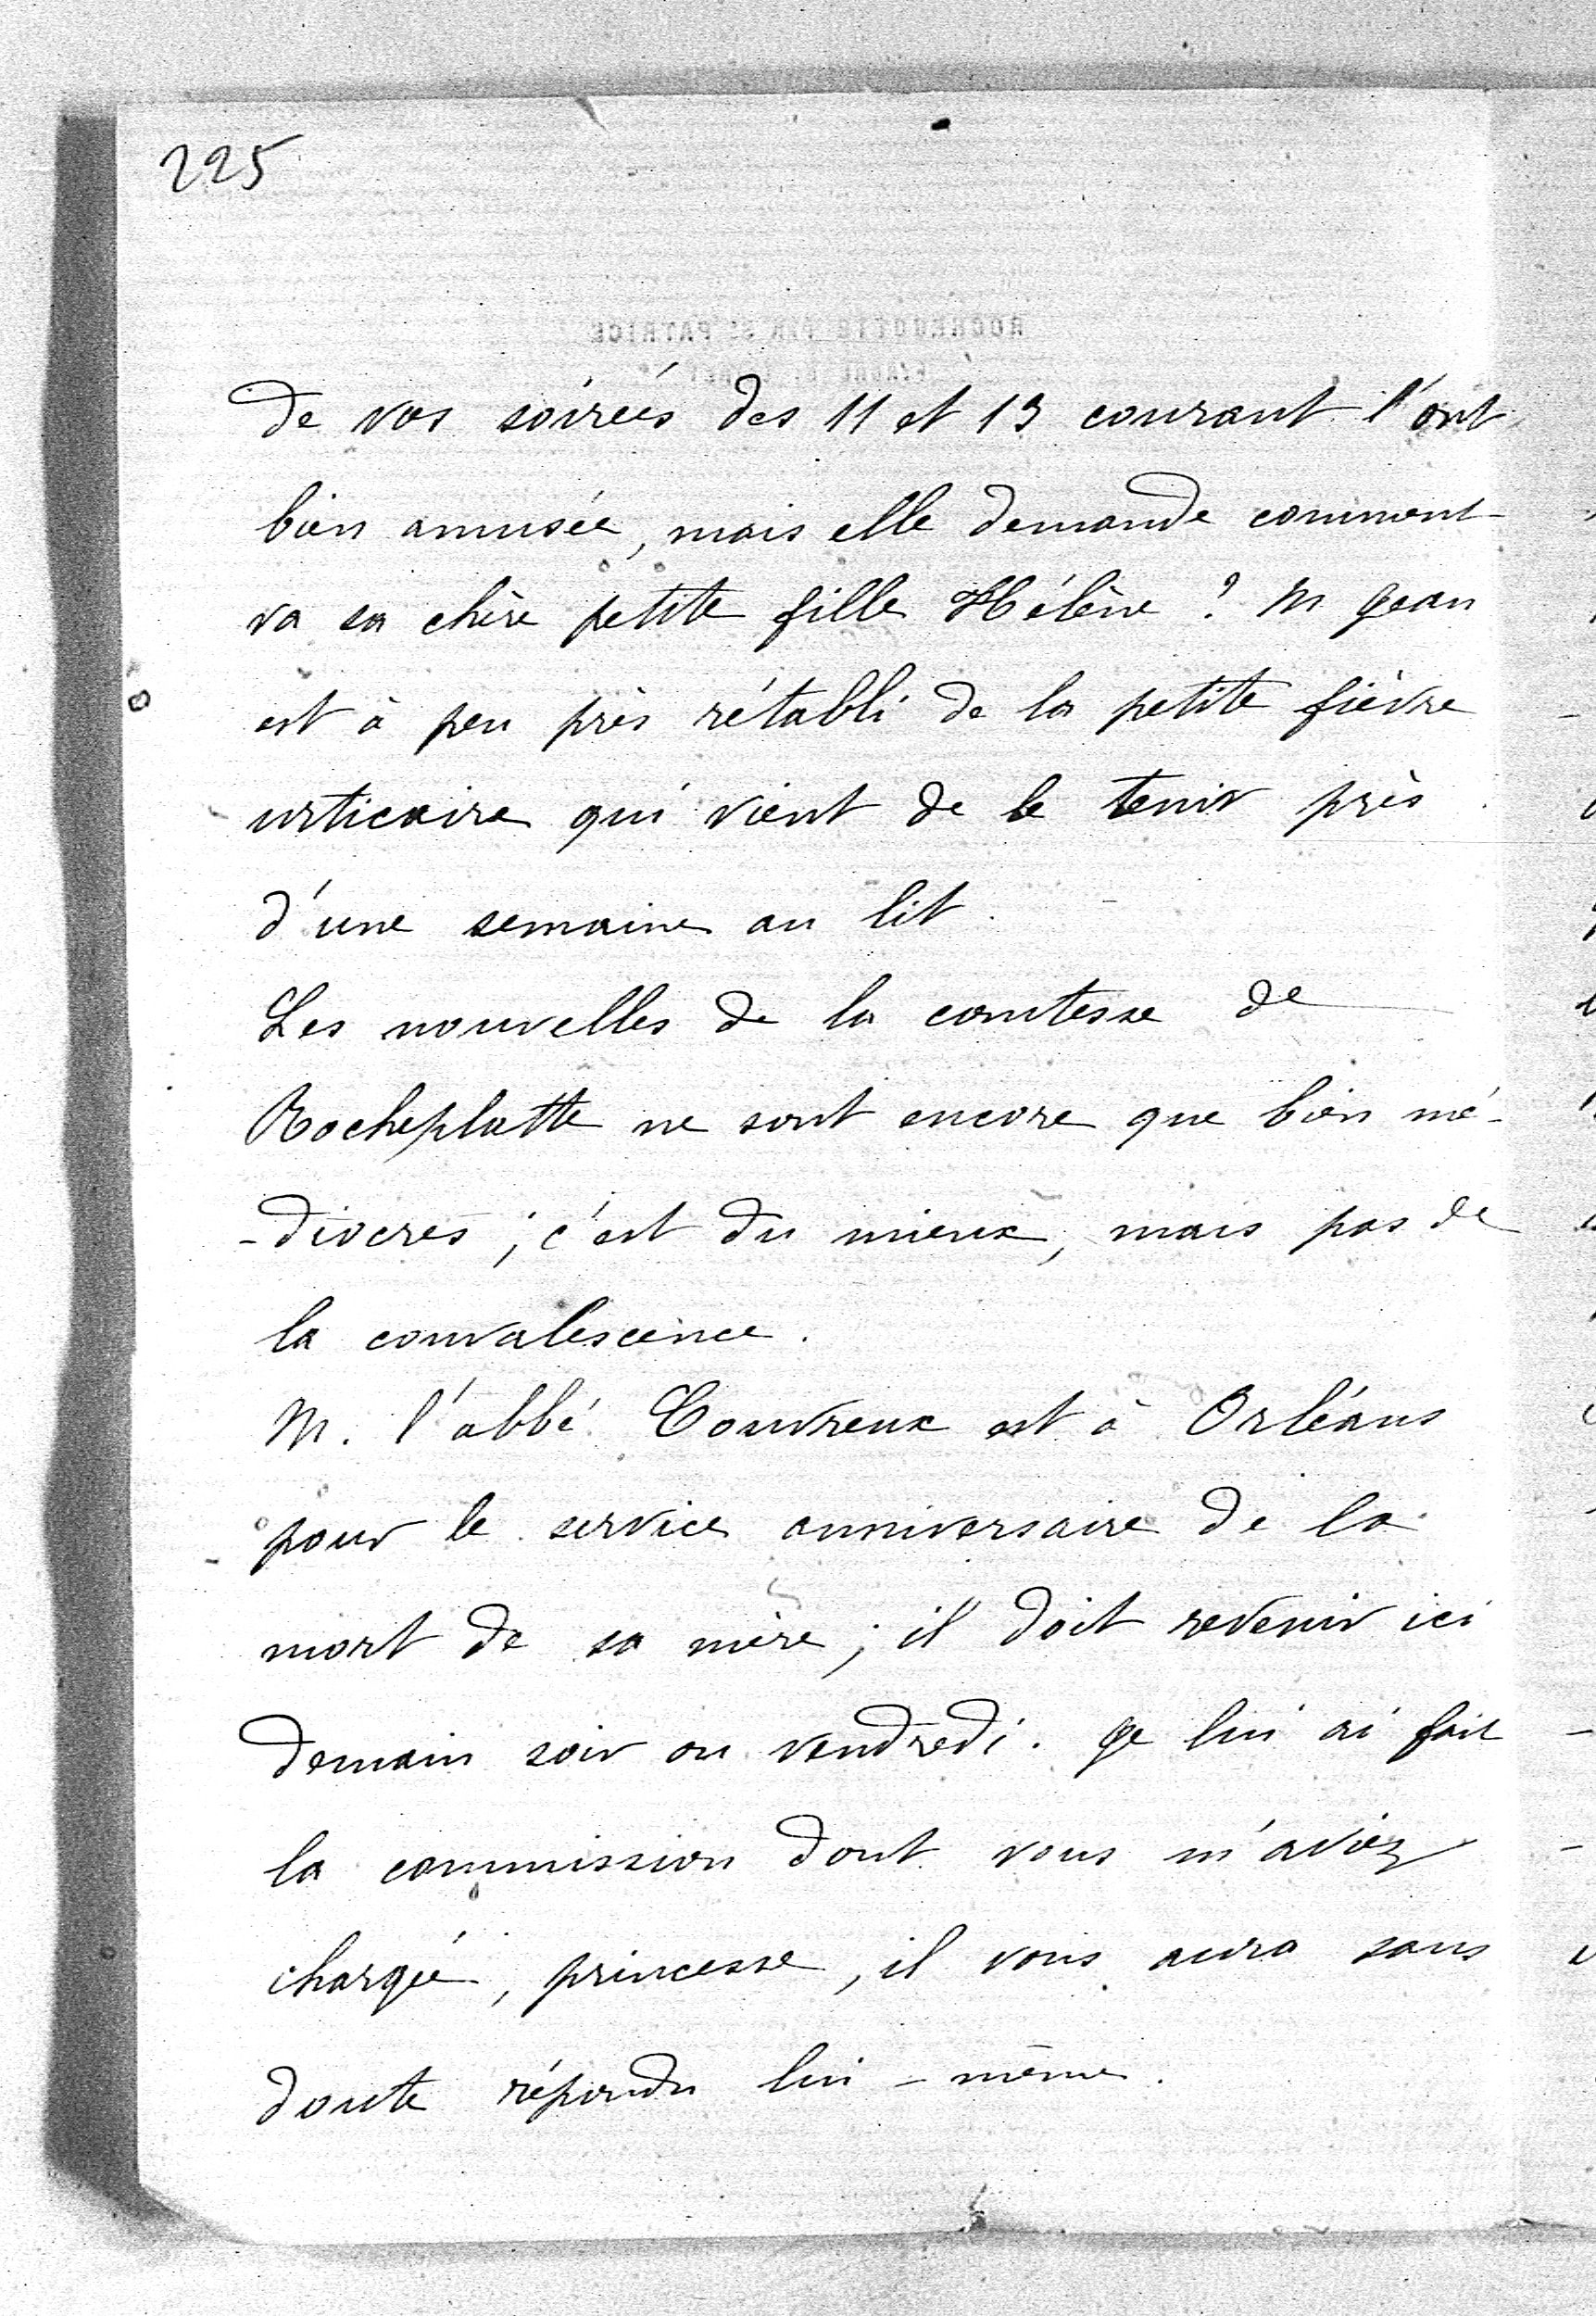 225
de vos soirées des 11 et 13 courant l'ont
bien amusée, mais elle demande comment
va sa chère petite fille Hélène ? M Jean
est à peu près rétabli de la petite fièvre
urticaire qui vient de le tenir près
d'une semaine au lit.
Les nouvelles de la comtesse de
Rocheplatte ne sont encore que bien mé-
-diocres ; c'est du mieux, mais pas de
la convalescence.
M. l'abbé Couvreux est à Orléans
pour le service anniversaire de la
mort de sa mère ; il doit revenir ici
demain soir ou vendredi. Je lui ai fait
la commission dont vous m'aviez
chargée, princesse, il vous aura sans
doute répondu lui-même.